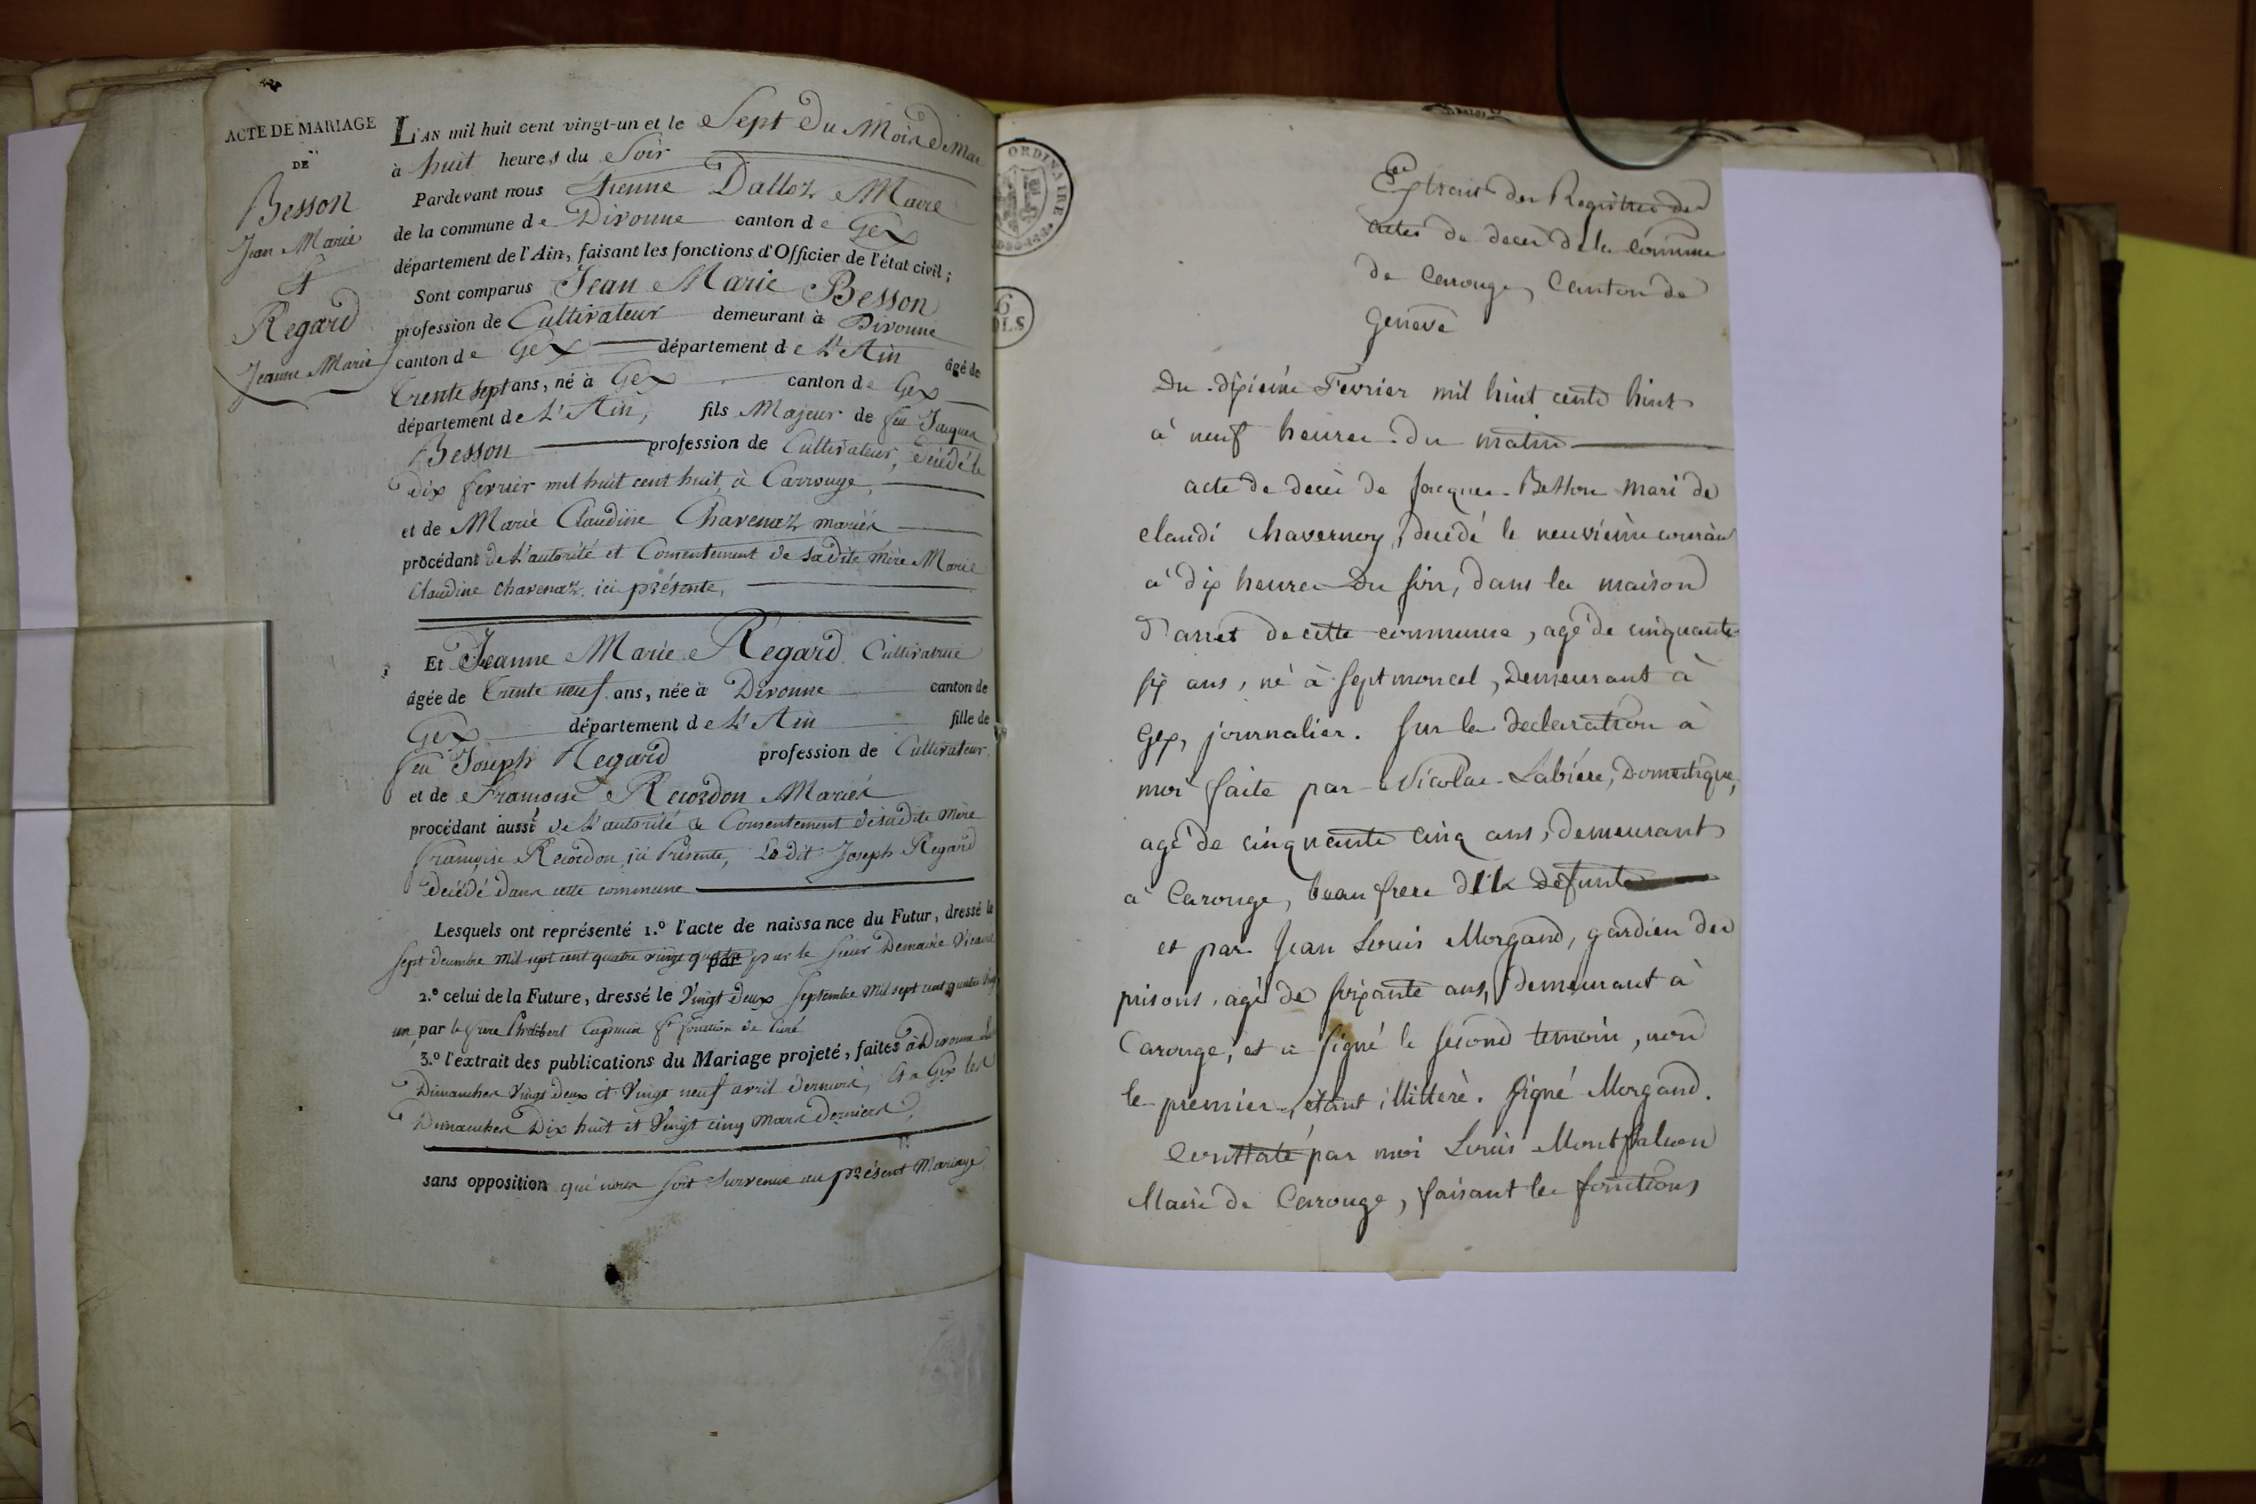 ACTE DE MARIAGE
DE
Besson
Jean Marie
Et
Regard
Jeanne Marie
L'AN mil huit cent vingt-un et le Sept du Mois de Mai
à huit heures du Soir
Pardevant nous Etienne Dalloz Maire
de la commune de Divonne canton de Gex
département de l'Ain, faisant les fonctions d'Officier de l'état civil;
Sont comparus Jean Marie Besson
profession de Cultivateur demeurant à Divonne
canton de Gex département de L'Ain âgé de
trente sept ans, né à Gex canton de Gex
département de L'Ain, fils Majeur de feu Jacques
Besson profession de Cultivateur, décédé le
dix fevrier mil huit cent huit, à Carrouge,
et de Marie Claudine Chavenaz mariés
procédant de L'autorité et Consentement de sadite mère Marie
Claudine Chavenaz, ici présente,
Et Jeanne Marie Regard Cultivatrice
âgée de trente neuf ans, née à Divonne canton de
Gex département de L'Ain fille de
feu Joseph Regard profession de Cultivateur
et de Françoise Recordon Mariés
procédant aussi de L'autorité & Consentement de sadite mère
Françoise Recordon, ici Présente, Le dit Joseph Regard
décédé dans cette commune
Lesquels ont représenté 1.º l'acte de naissance du Futur, dressé le
sept décembre mil sept cent quatre vingt par par le Sieur Vicaire
2.º celui de la Future, dressé le Vingt deux Septembre Mil sept cent quatre vingt
un, par le frere Capucin fonction de Curé
3.º l'extrait des publications du Mariage projeté, faites à Divonne les
Dimanches Vingt deux et Vingt neuf avril derniers, Et a Gex les
Dimanches Dix huit et Vingt cinq Mars Derniers,
sans opposition qui nous soit survenue au présent Mariage
ORDINAIRE
Extrait des Registres des
actes de decès de la commune
de Carouge, Canton de
Geneve
Du dixième Fevrier mil huit cents huit
à neuf heures du matin
acte de decès de Jacques Besson mari de
claudi chavernoy, decedé le neuvième courant
à dix heures Du soir, dans la maison
d'arret de cette commune, agé de cinquante
six ans, né à Septmoncel, Demeurant à
Gex, journalier. Sur la declaration à
moi faite par Nicolas Labiere, Domestique,
agé de cinquante cinq ans, demeurant
à Carouge, beau frere defunt
et par Jean Louis Morgand, gardien des
prisons, agé de soixante ans, Demeurant à
Carouge, et a signé le second temoin, non
le premier, étant illitteré. Signé Morgand.
Constaté par moi Louis Montfalcon
Maire de Carouge, faisant les fonctions